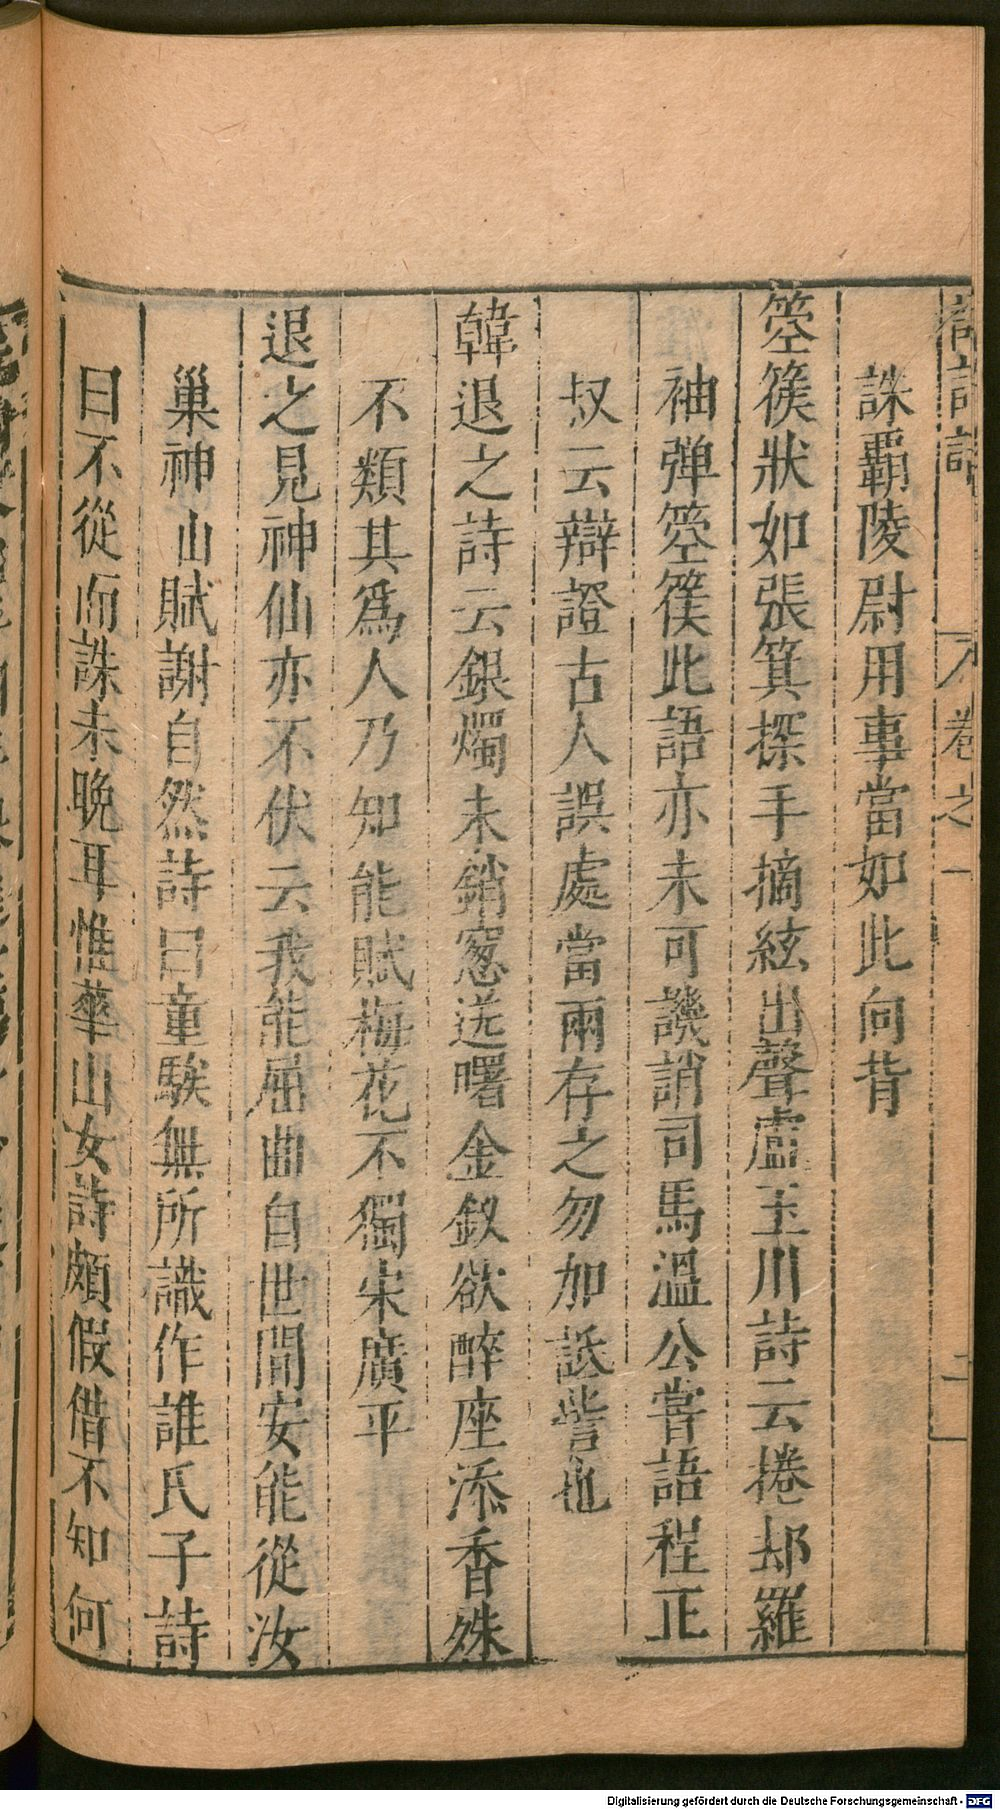 卷之一
二
誅覇陵尉用事當如此向背
箜篌狀如張箕探手摘絃出聲盧玉川詩云捲却羅
袖彈箜篌此語亦未可譏誚司馬溫公嘗語程正
叔云辯證古人誤處當兩存之勿加詆訾也
韓退之詩云銀燭未銷窓送曙金釵欲醉座添香殊
不類其爲人乃知能賦梅花不獨宋廣平
退之見神仙亦不伏云我能屈曲自世間安能從汝
巢神山賦謝自然詩曰童騃無所識作誰氏子詩
曰不從而誅未晩耳惟華山女詩頗假借不知何
Digitalisierung gefördert durch die Deutsche Forschungsgemeinschaft - DFG